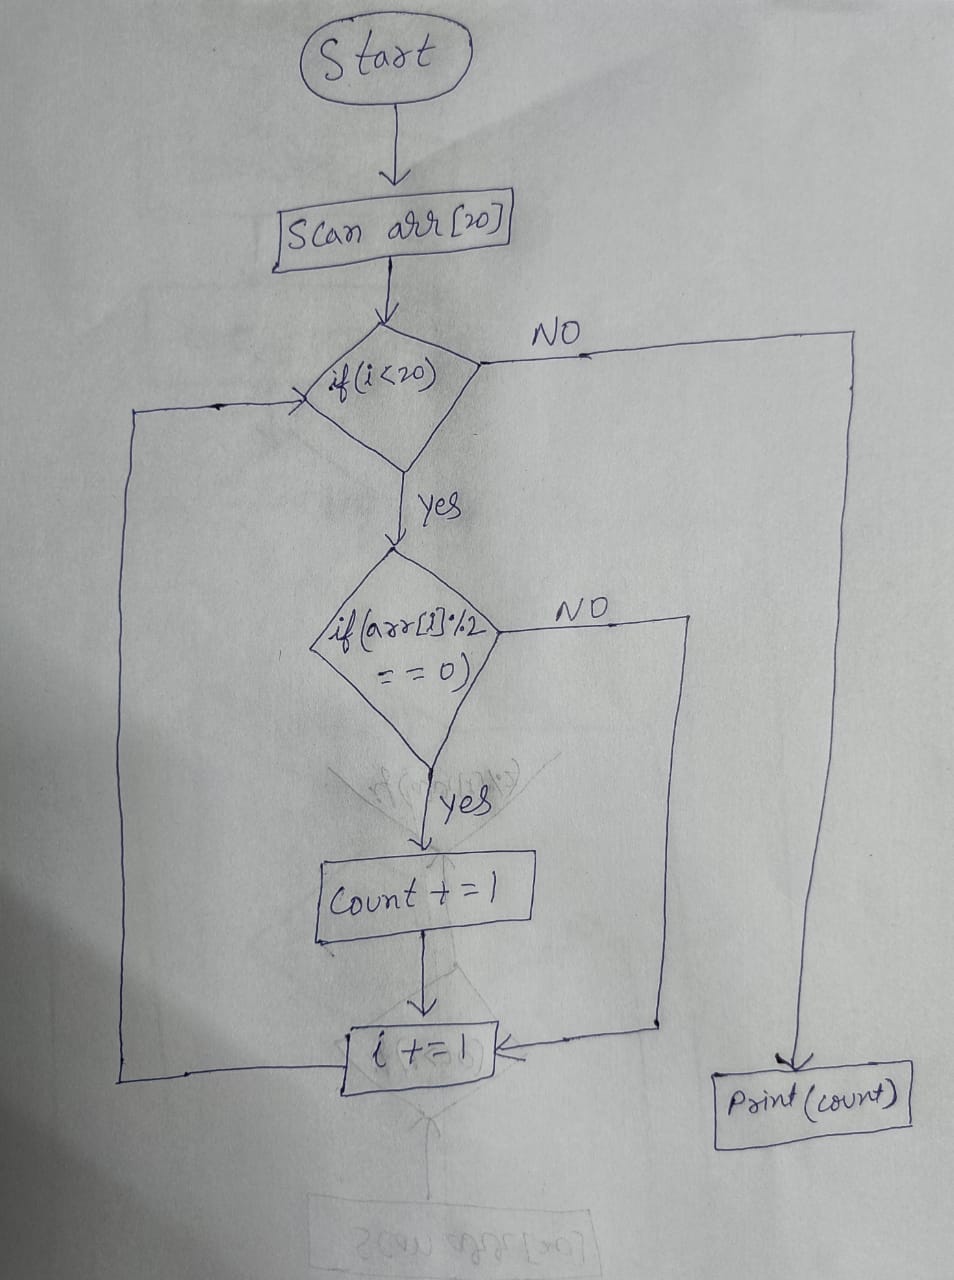 Start
Scan arr[20]
if(i<20)
NO
yes
if(arr[i]%2
==0)
NO
yes
Count +=1
i +=1
Print(count)